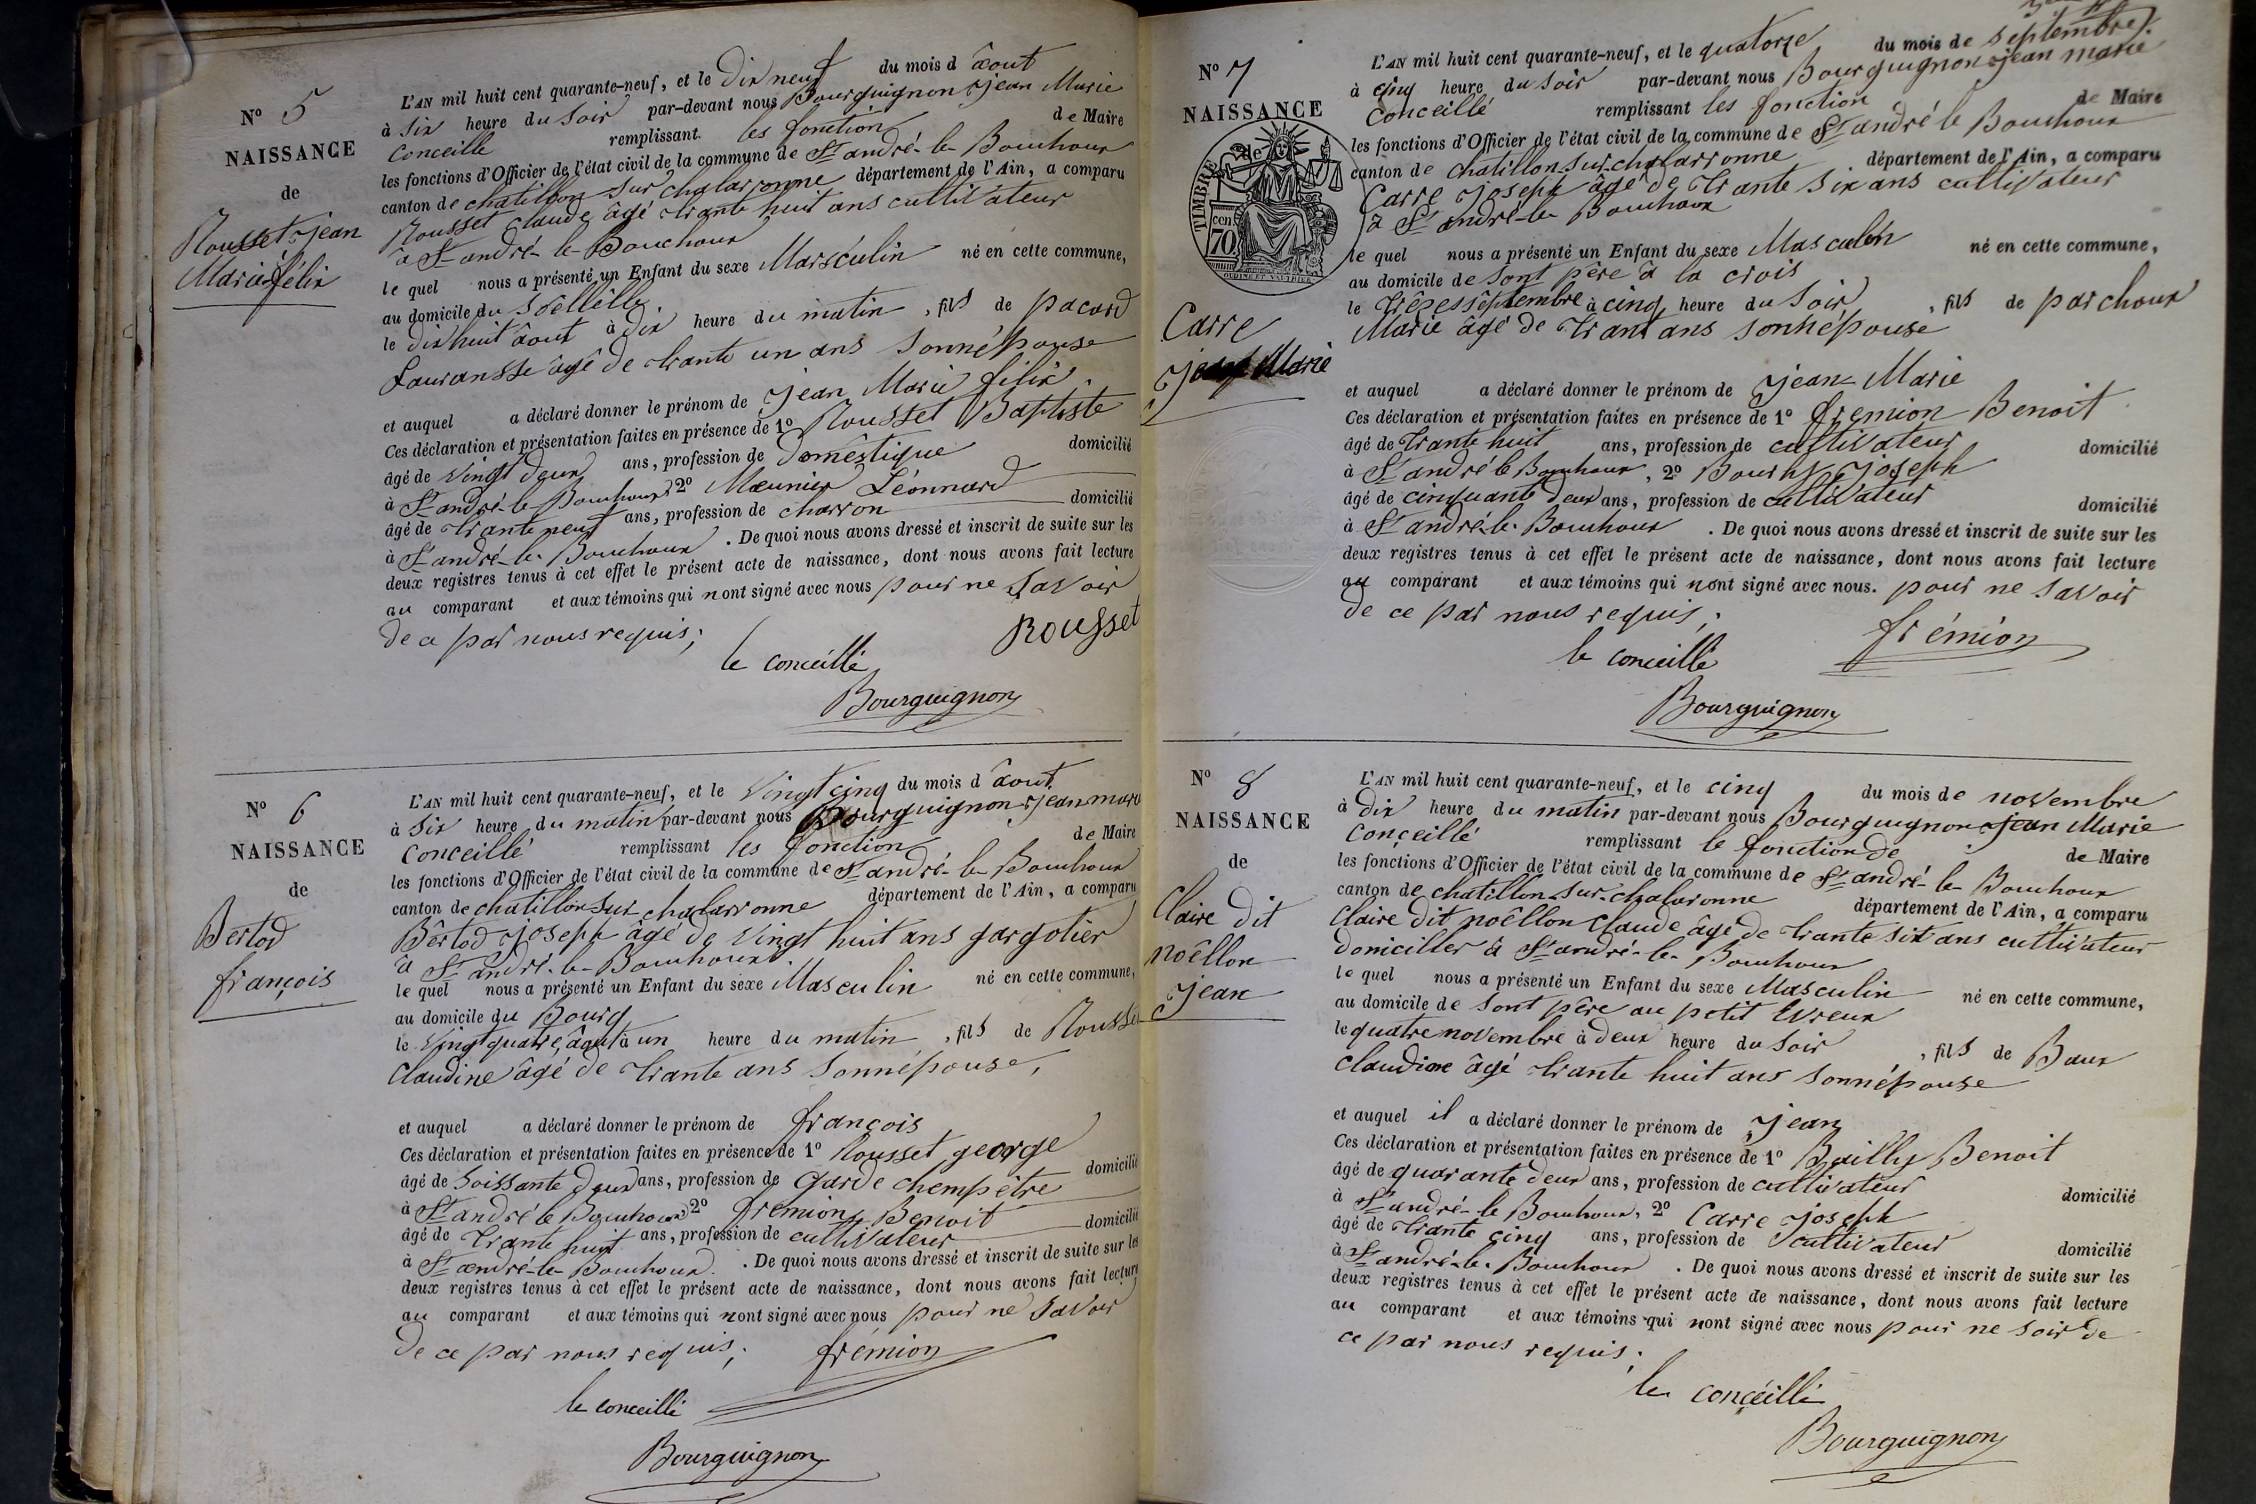 N° 5
NAISSANCE
de
Rousset jean
Marie félix
L'AN mil huit cent quarante-neuf, et le dix neuf du mois d âout
à six heure du soir par-devant nous Bourguignon jean Marie
Conceille remplissant les fonction de Maire
les fonctions d'Officier de l'état civil de la commune de St andré-le-Bouchoux
canton de chatillon sur chalaronne département de l'Ain, a comparu
Rousset claude âgé trante huit ans cultivateur
à St andré-le-Bouchoux
le quel nous a présenté un Enfant du sexe Marsculin né en cette commune,
au domicile du
le dix huit âout à dix heure du matin, fils de pacard
Lauransse âgé de trante un ans sonnépouse
et auquel a déclaré donner le prénom de jean Marie félix
Ces déclaration et présentation faites en présence de 1° Rousset Baptiste
âgé de vingt deux ans, profession de domêstique domicilié
à St andré-le Bouchoux 2° Meunier Léonnard
âgé de trante neuf ans, profession de charron domicilié
à St andré-le-Bouchoux. De quoi nous avons dressé et inscrit de suite sur les
deux registres tenus à cet effet le présent acte de naissance, dont nous avons fait lecture
au comparant et aux témoins qui nont signé avec nous pour ne savoir
de ce par nous requis;
Rousset
le conceillé
Bourguignon
N° 6
NAISSANCE
de
Bertod
françois
L'AN mil huit cent quarante-neuf, et le vingt cinq du mois d âout
à six heure du matin par-devant nous Bourguignon jean marie
Conceillé remplissant les fonction de Maire
les fonctions d'Officier de l'état civil de la commune de St andré-le-Bouchoux
canton de chatillon sur chalaronne département de l'Ain, a comparu
Bêrtod joseph âgé de vingt huit ans gargotier
à St andré-le-Bouchoux.
le quel nous a présenté un Enfant du sexe Masculin né en cette commune,
au domicile du Bourg
le vingt quatre âout à un heure du matin, fils de Rousset
Claudine âgé de trante ans sonnépouse,
et auquel a déclaré donner le prénom de françois
Ces déclaration et présentation faites en présence de 1° Rousset george
âgé de soissante deux ans, profession de garde chempêtre domicilié
à St andré le Bouchoux 2° fremion Benoit
âgé de trante huit ans, profession de cultivateur domicilié
à St andré-le-Bouchoux. De quoi nous avons dressé et inscrit de suite sur les
deux registres tenus à cet effet le présent acte de naissance, dont nous avons fait lecture
au comparant et aux témoins qui nont signé avec nous pour ne savoir
de ce par nous requis; frémion
le conceillé
Bourguignon
N° 7
NAISSANCE
TIMBRE
cen
70
Carre
Marie
L'AN mil huit cent quarante-neuf, et le quatorze du mois de septembre
à cinq heure du soir par-devant nous Bourguignon jean marie
Conceillé remplissant les fonction de Maire
les fonctions d'Officier de l'état civil de la commune de St andré le Bouchoux
canton de chatillon-sur-chalaronne département de l'Ain, a comparu
Carre joseph âgé de trante six ans cultivateur
à St andré-le Bouchoux
le quel nous a présenté un Enfant du sexe Masculin né en cette commune,
au domicile de sont père à la crois
le trêzes sêptembre à cinq heure du soir, fils de parchoux
Marie âgé de trant ans sonnépouse
et auquel a déclaré donner le prénom de jean Marie
Ces déclaration et présentation faites en présence de 1° fremion Benoit
âgé de trante huit ans, profession de cultivateur domicilié
à St andré le Bouchoux, 2° joseph
âgé de cinquante deux ans, profession de cultivateur domicilié
à St andré-le-Bouchoux. De quoi nous avons dressé et inscrit de suite sur les
deux registres tenus à cet effet le présent acte de naissance, dont nous avons fait lecture
au comparant et aux témoins qui nont signé avec nous. pour ne savoir
de ce par nous requis;
frémion
le conceillé
Bourguignon
N° 8
NAISSANCE
de
Claire dit
noêllon
jean
L'AN mil huit cent quarante-neuf, et le cinq du mois de novembre
à dix heure du matin par-devant nous Bourguignon jean Marie
Conçeillé remplissant le fonction de de Maire
les fonctions d'Officier de l'état civil de la commune de St andré-le-Bouchoux
canton de chatillon-sur-chalaronne département de l'Ain, a comparu
Claire dit noêllon Claude âgé de trante six ans cultivateur
domiciller à St andré-le-Bouchoux
le quel nous a présenté un Enfant du sexe Masculin né en cette commune,
au domicile de sont père au petit Evreux
le quatre novembre à deux heure du soir, fils de Baux
Claudine âgé trante huit ans sonnépouse
et auquel il a déclaré donner le prénom de jean
Ces déclaration et présentation faites en présence de 1° Bailly Benoit
âgé de quarante deux ans, profession de cultivateur domicilié
à St andré-le Bouchoux, 2° Carre joseph
âgé de trante cinq ans, profession de cultivateur domicilié
à St andré-le-Bouchoux. De quoi nous avons dressé et inscrit de suite sur les
deux registres tenus à cet effet le présent acte de naissance, dont nous avons fait lecture
au comparant et aux témoins qui nont signé avec nous pour ne soir de
ce par nous requis;
le conçéillé
Bourguignon